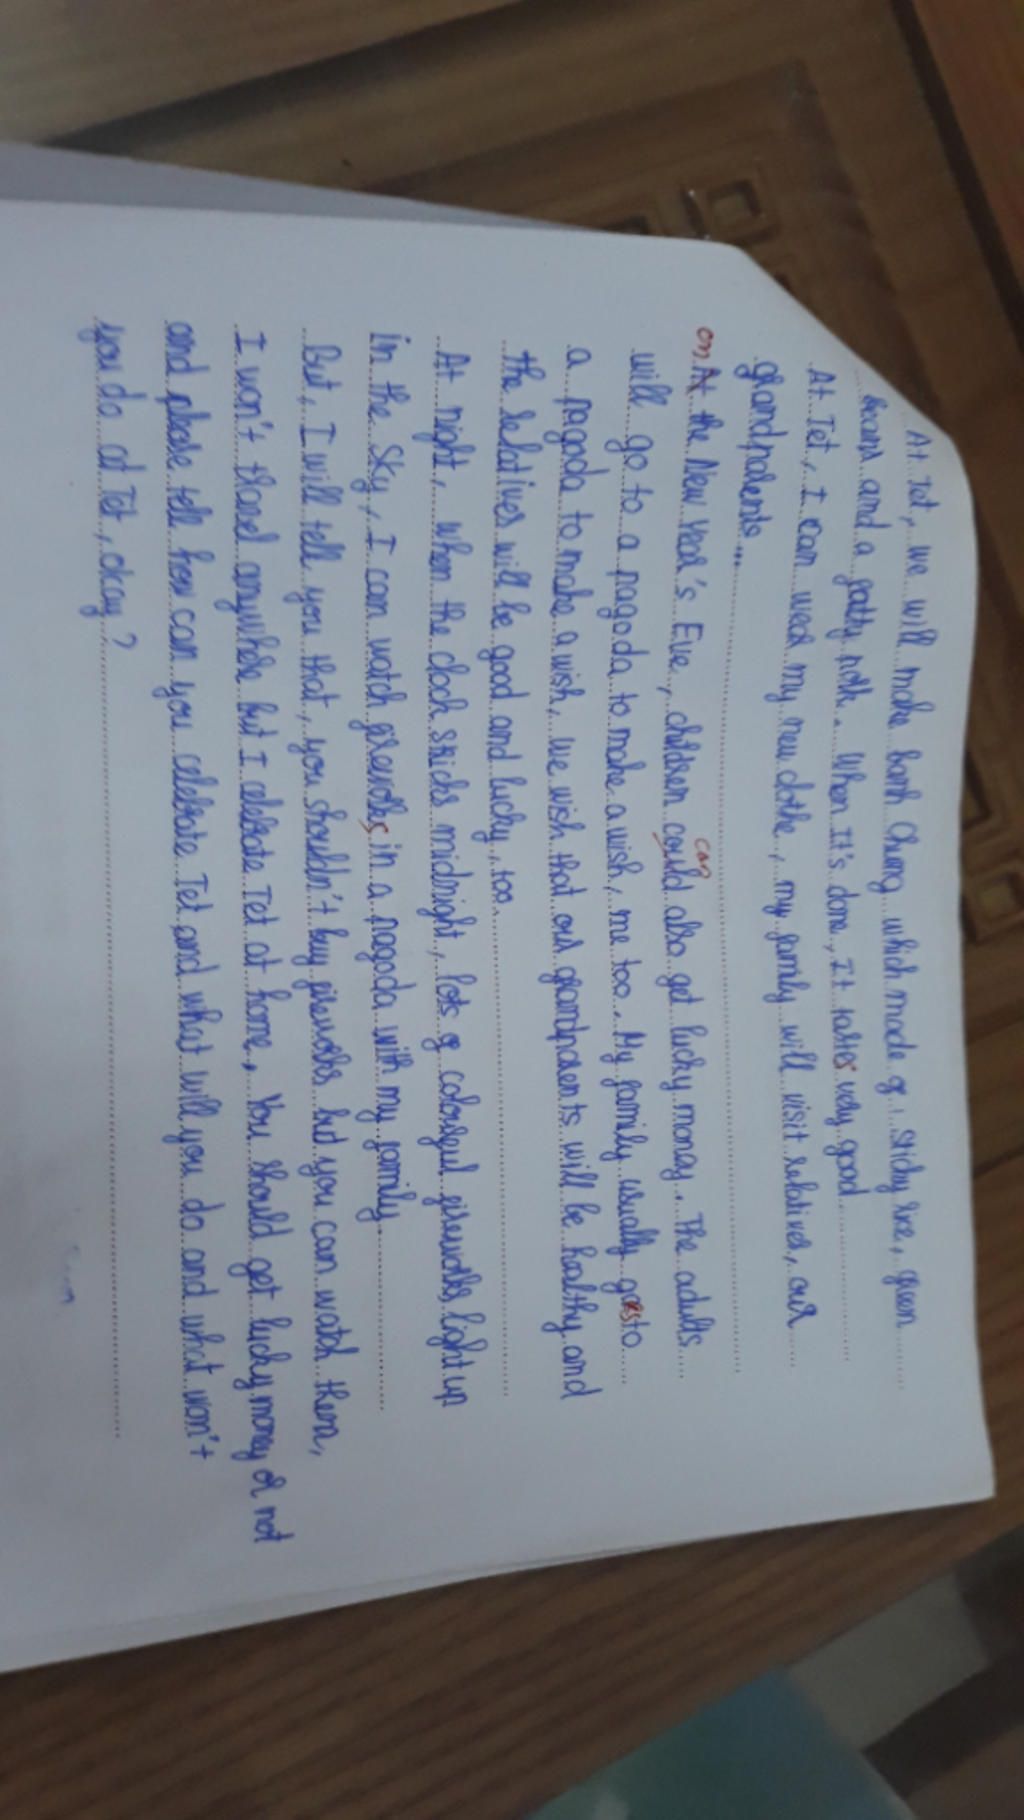 At Tet, we will make banh chung which made of: sticky rice, green
beans and a fatty pork. When It's done, It tastes very good.
At Tet, I can wear my new clothe, my family will visit relatives, our
grandparents...
on At the New year's Eve, children could can also get lucky money. The adults
will go to a pagoda to make a wish, me too. My family usually goes to
a pagoda to make a wish, we wish that our grandparents will be healthy and
the relatives will be good and lucky, too.
At night, when the clock sticks midnight, lots of colourful fireworks light up
in the sky, I can watch fireworks in a pagoda with my family
But, I will tell you that, you shouldn't buy fireworks but you can watch them,
I won't travel anywhere but I celebrate Tet at home. You should get lucky money or not
and please tell how can you celebrate Tet and what will you do and what won't
you do at Tet, okay?